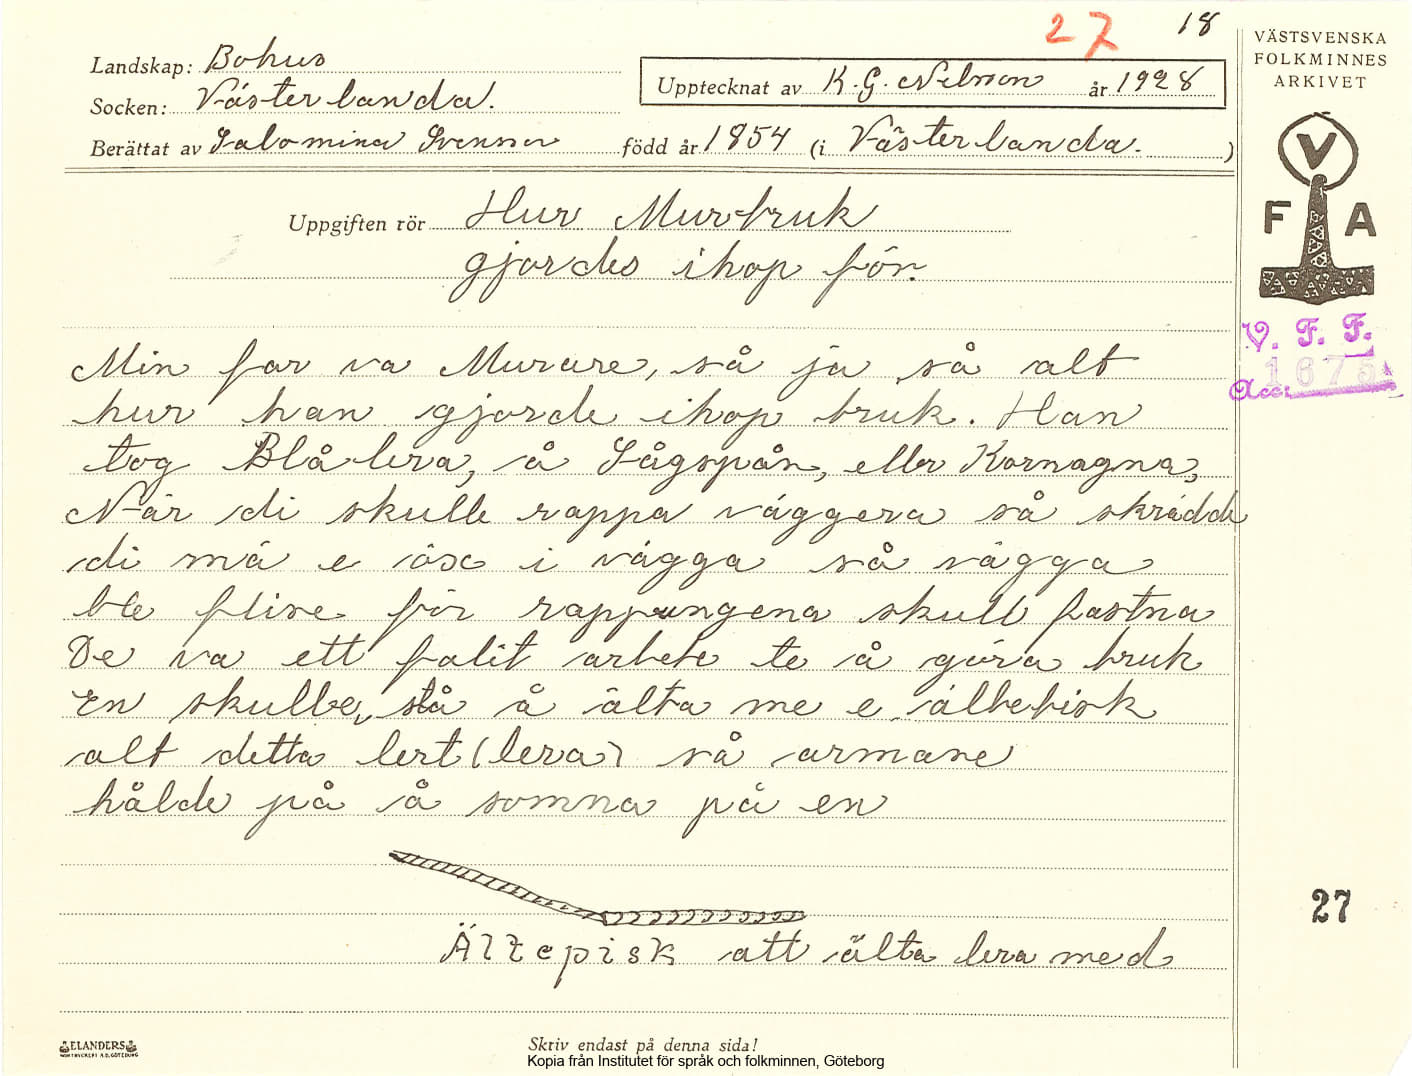 27 18
VÄSTSVENSKA
FOLKMINNES
ARKIVET
Landskap: Bohus
Upptecknat av K. G. Nelsson år 1928
Socken: Västerlanda.
Berättat av Salomina Svensson född år 1854 (i Västerlanda. )
V
F A
Uppgiften rör Hur Murbruk
gjordes ihop för.
V. F. F.
Acc: 1675
Min far va Murare, så ja så alt
hur han gjorde ihop bruk. Han
tog Blålera, å Sågspån, eller Kornagna,
När di skulle rappa väggera så skrädde
di mä e öx i vägga så vägga
ble flise för rappungena skull fastna
De va ett falit arbete te å göra bruk
En skulle, stå å älta me e ältepisk
alt detta lert (lera) så armane
hålde på å somna på en
27
Ältepisk att älta lera med
ELANDERS
BOKTRYCKERI A.B. GÖTEBORG
Skriv endast på denna sida!
Kopia från Institutet för språk och folkminnen, Göteborg